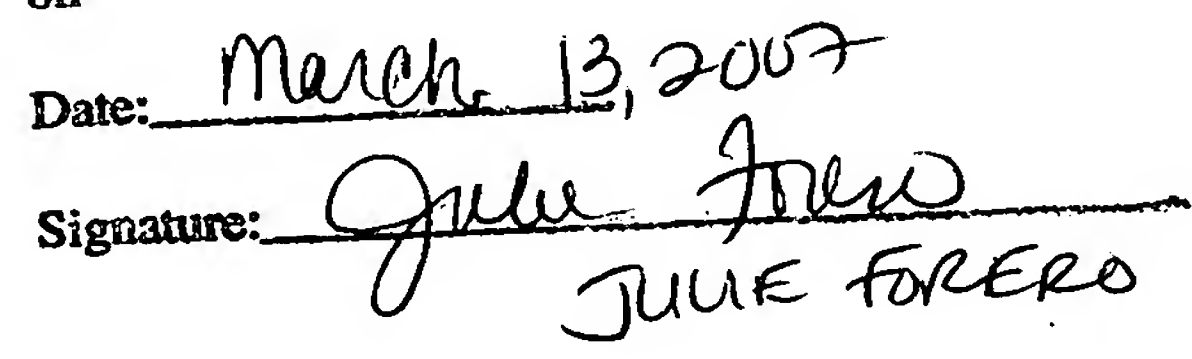 on
Date: March 13, 2007
Signature: Julie Forero
JULIE FORERO